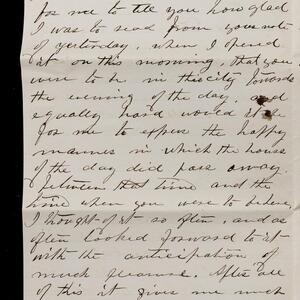 for me to tell you how glad
I was to read from your note
of yesterday, when I opened
it on this morning, that you
were to be in this city towards
the evening of the day, and
equally hard would it be
for me to express the happy
manner in which the hours
of the day did pass away.
Between that time and the
time when you were to be here,
I thought of it so often, and as
often looked forward to it
with the anticipation of
much pleasure. After all
of this it gives me much